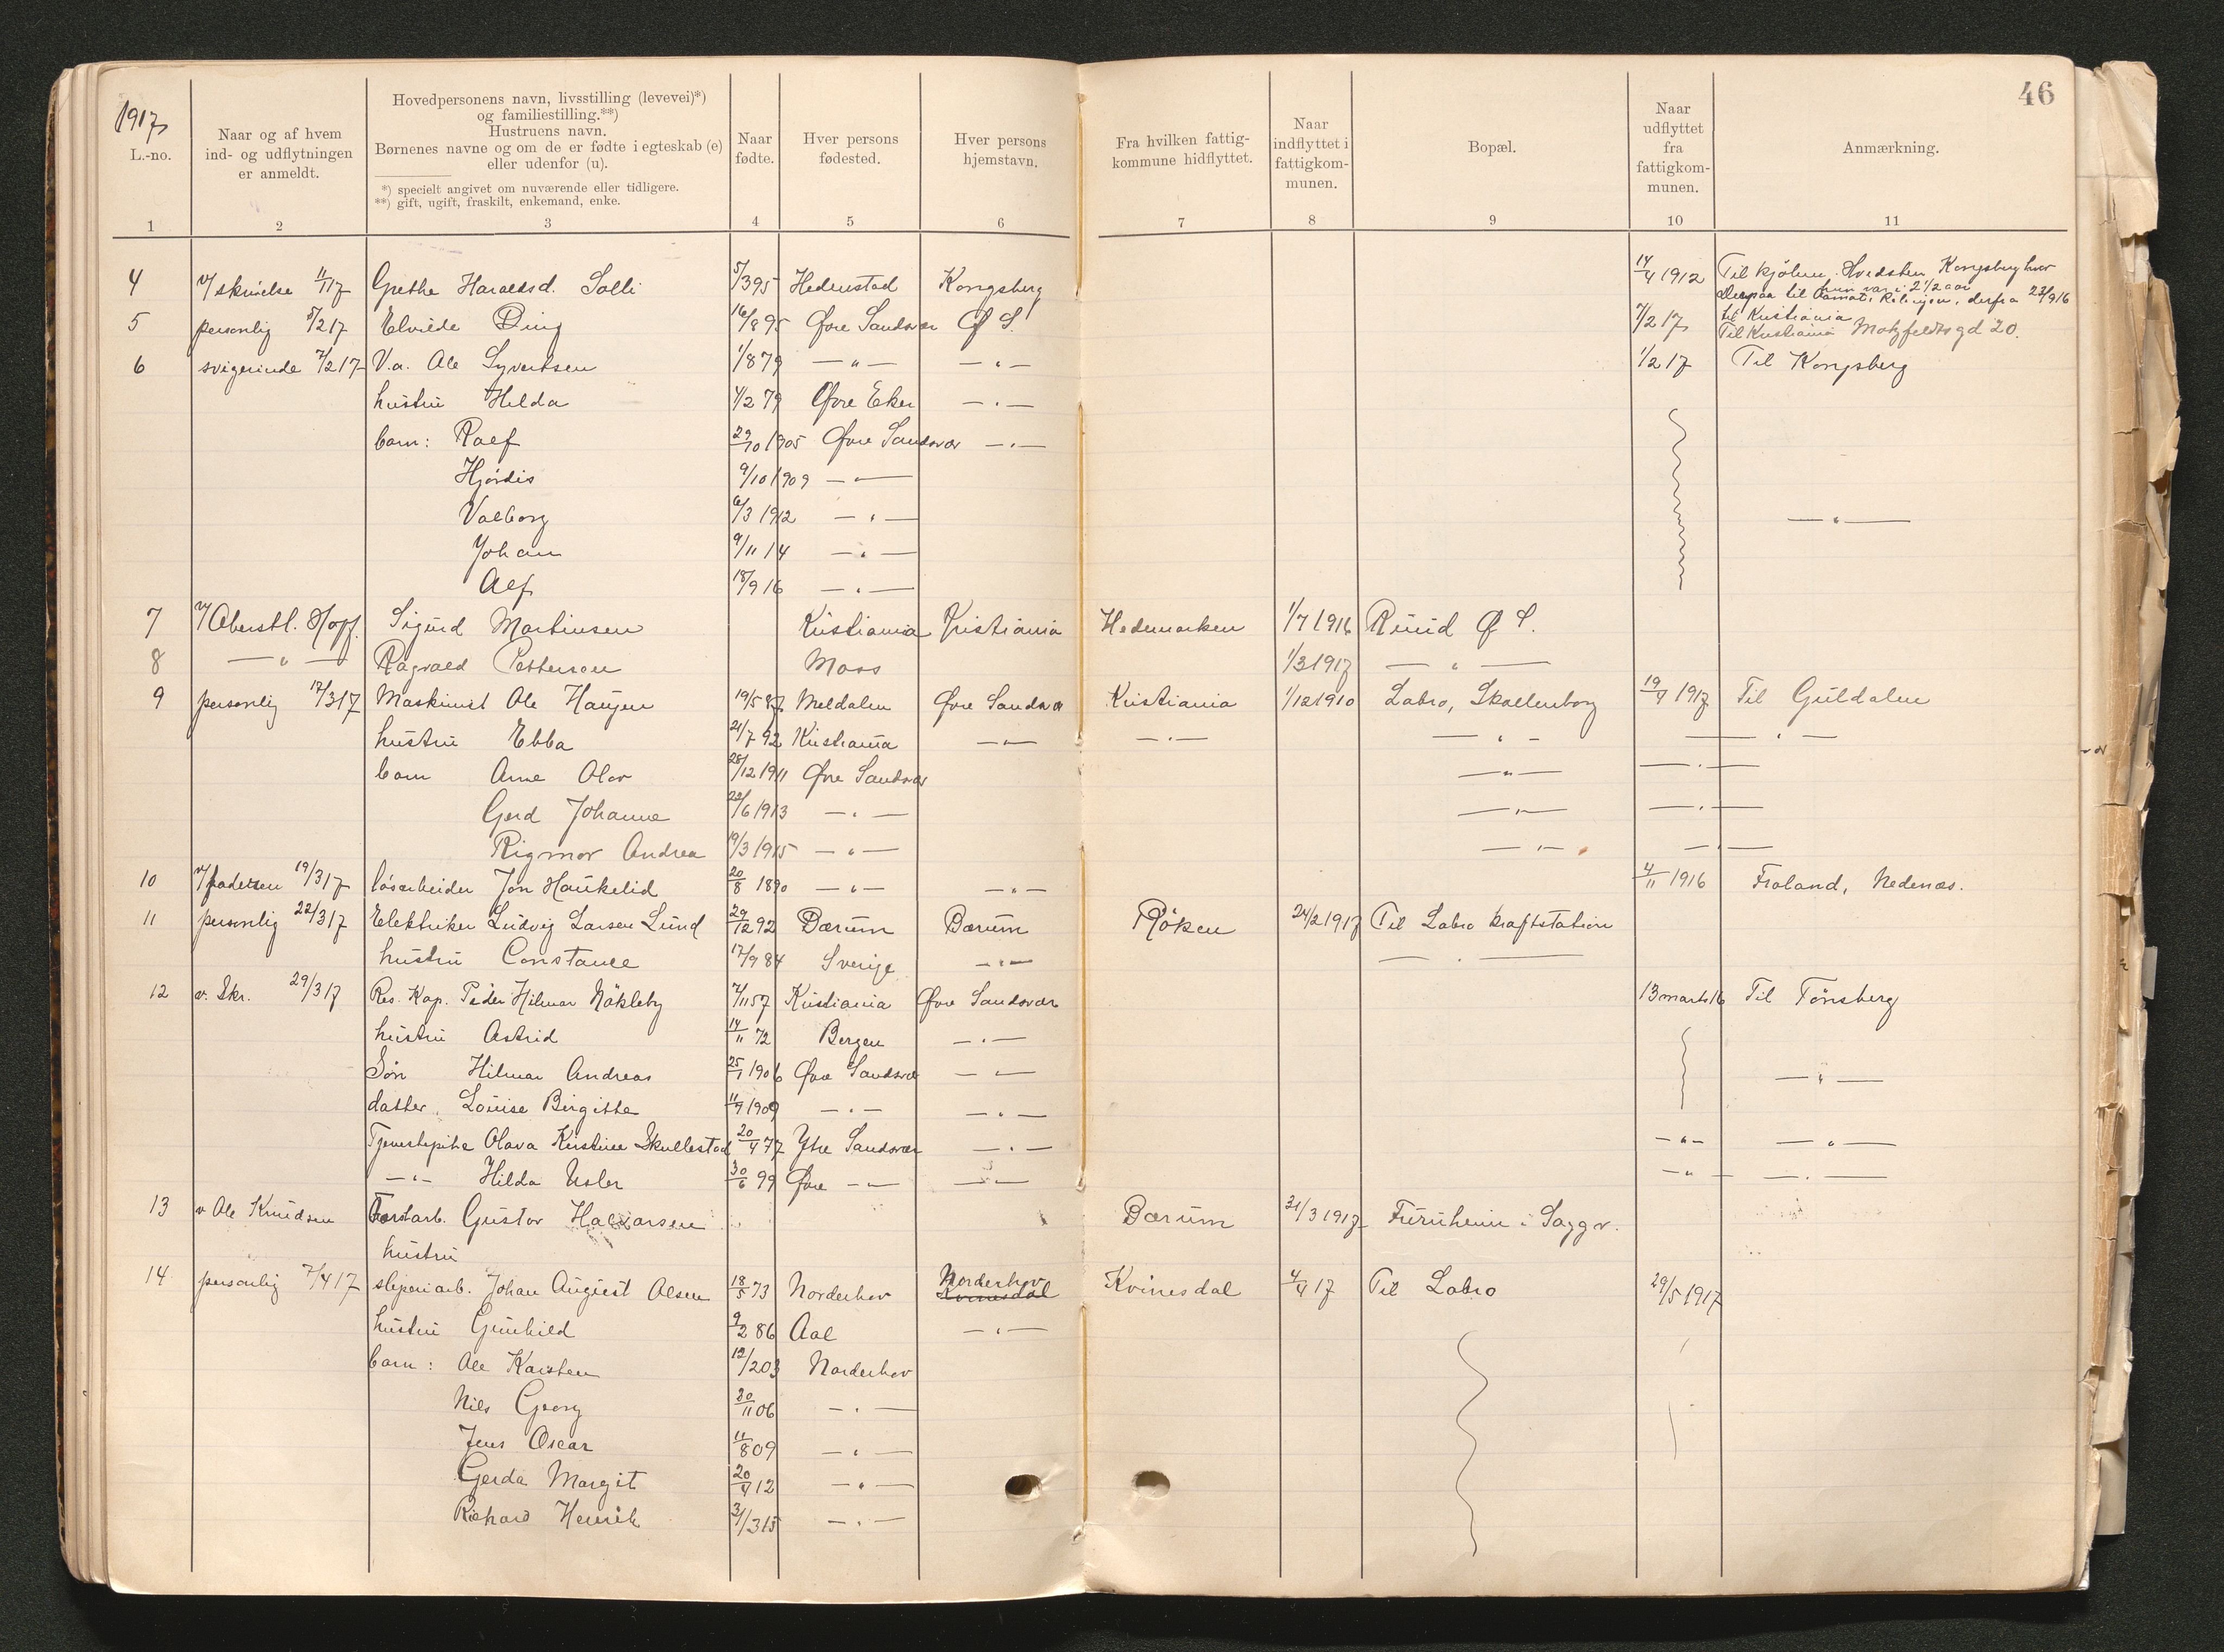 46
1917
L.-no.
Naar og af hvem
ind- og udflytningen
er anmeldt.
Hovedpersonens navn, livsstilling (levevei)*)
og familiestilling.**)
Hustruens navn.
Børnenes navne og om de er fødte i egteskab (e)
eller udenfor (u).
*) specielt angivet om nuværende eller tidligere.
**) gift, ugift, fraskilt, enkemand, enke.
Naar
fødte.
Hver persons
fødested.
Hver persons
hjemstavn.
Fra hvilken fattig-
kommune hidflyttet.
Naar
indflyttet i
fattigkom-
munen.
Bopæl.
Naar
udflyttet
fra
fattigkom-
munen.
Anmærkning.
1 2 3 4 5 6 7 8 9 10 11
4 v/ skrivelse 11/1 17 Grethe Haraldsd. Solli 5/3 95 Hedenstad Kongsberg 14/4 1912 Til kjøbm. Hvidsten, Kongsberg hvor
hun var i 2 1/2 aar
Derpaa til Rælingen, derfra 23/9 16
til Kristiania
5 personlig 5/2 17 Elvilde Ding 16/8 95 Øvre Sandsvær Ø S. 7/2 17 Til Kristiania Motzfeldts gd 20.
6 svigerinde 7/2 17 V.a. Ole Syvertsen 1/8 79 — " — — " — 1/2 17 Til Kongsberg
hustru Hilda 4/2 79 Øvre Eker — " —
barn: Ralf 29/10 1905 Øvre Sandsvær — " —
Hjørdis 9/10 1909 — " —
Valborg 6/3 1912 — " — — " —
Johan 9/11 14 — " —
Alf 18/9 16 — " —
7 v/ Oberstl. Hoff. Sigurd Martinsen Kristiania Kristiania Hedemarken 1/7 1916 Ruud Ø S.
8 — " — Ragvald Pettersen Moss 1/3 1917 — " —
9 personlig 17/3 17 Maskinist Ole Haugen 19/5 87 Meldalen Øvre Sandsvær Kristiania 1/12 1910 Labro, Skollenborg 19/4 1917 Til Guldalen
hustru Ebba 21/7 92 Kristiania — " — — " — — " — — " —
barn Arne Olav 28/12 1911 Øvre Sandsvær — " — — " —
Gerd Johanne 22/6 1913 — " — — " — — " —
Rigmor Andrea 19/3 1915 — " — — " — — " —
10 v/ faderen 19/3 17 løsarbeider Jon Haukelid 20/8 1890 — " — — " — 4/11 1916 Froland, Nedenæs.
11 personlig 22/3 17 Elektriker Ludvig Larsen Lund 29/12 92 Bærum Bærum Röken 24/2 1917 Til Labro kraftstation
hustru Constance 17/9 84 Sverige — " — — " —
12 v. Skr. 29/3 17 Res. Kap. Peder Hilmar Nökleby 7/11 57 Kristiania Øvre Sandsvær 13 marts 16 Til Tönsberg
hustru Astrid 14/11 72 Bergen — " —
Søn Hilmar Andreas 25/1 1906 Øvre Sandsvær — " — — " —
datter, Louise Birgitte 11/9 1909 — " — — " —
Tjenestepike Olava Kristine Skullestad 20/4 77 Ytre Sandsvær — " — — " — — " —
— " — Hilda Usler 30/6 99 Øvre — " — — " — — " — — " —
13 v Ole Knudsen Forstarb. Gustav Halvarsen Bærum 31/3 1917 Furuheim i Saggr.
hustru
14 personlig 7/4 17 sliperiarb. Johan August Olsen 18/5 73 Norderhov Norderhov
Kvinesdal Kvinesdal 4/4 17 Til Labro 29/5 1917
hustru Gunhild 9/2 86 Aal — " —
barn: Ole Karsten 12/2 03 Norderhov
Nils Georg 30/11 06 — " —
Jens Oscar 11/8 09 — " —
Gerda Margit 20/4 12 — " —
Richard Henrik 31/3 15 — " —